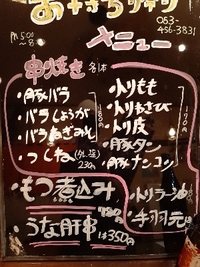 PM5:00
~8
053-
456-3831
メニュー
串焼き 各1本
・豚バラ
・バラしょうが
・バラねぎみそ
・つくね(タレ、塩)
230円
180円
・トリもも
・トリわさび
・トリ皮
・豚タン
・豚ナンコツ
170円
・もつ煮込み
・うな肝串 1本350円
・トリラーメン
・手羽元